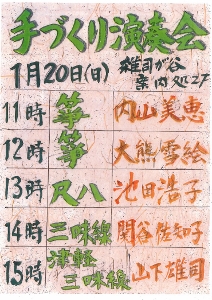 手づくり演奏会
1月20日(日) 雑司が谷
案内処2F
11時 箏 内山美恵
12時 箏 大熊雪絵
13時 尺八 池田浩子
14時 三味線 関谷佐知子
15時 津軽三味線 山下雄司